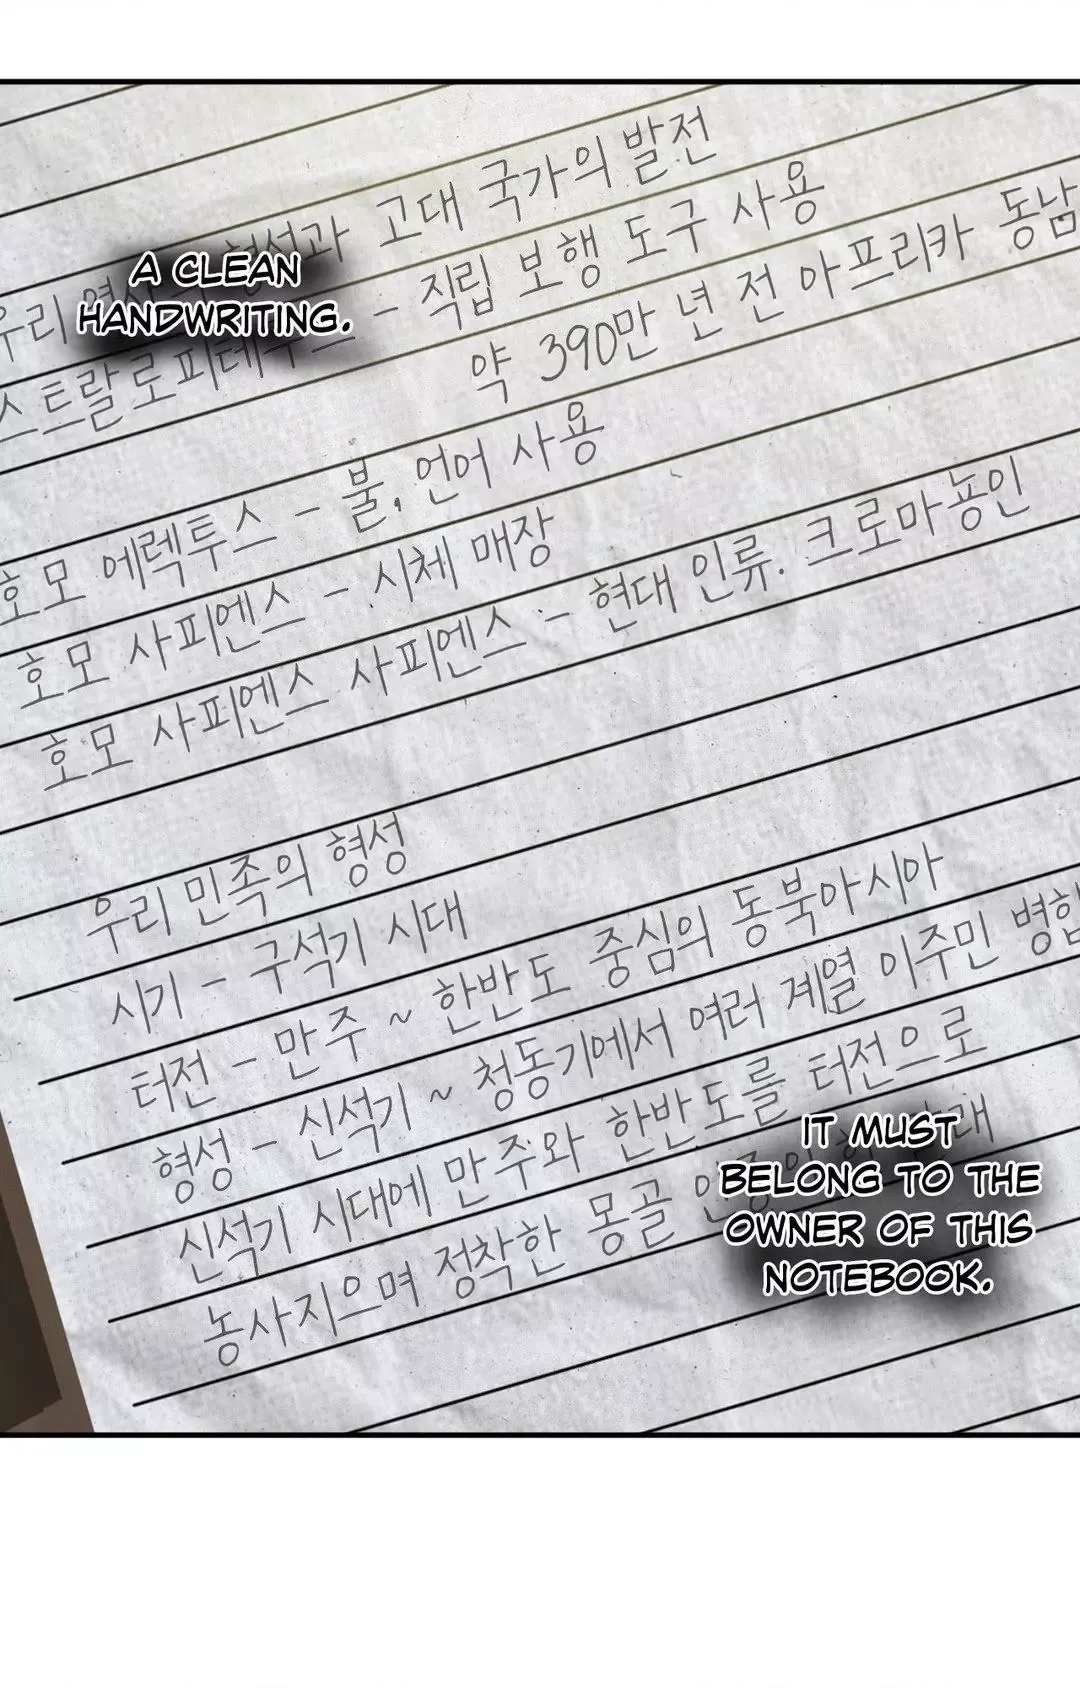 형성과 고대 국가의 발전
A CLEAN
HANDWRITING.
스트랄로피테쿠스 - 직립 보행 도구 사용
약 390만 년 전 아프리카 동남
호모 에렉투스 - 불, 언어 사용
호모 사피엔스 - 시체 매장
호모 사피엔스 사피엔스 - 현대 인류. 크로마뇽인
우리 민족의 형성
시기 - 구석기 시대
터전 - 만주 ~ 한반도 중심의 동북아시아
형성 - 신석기 ~ 청동기에서 여러 계열 이주민 병합
신석기 시대에 만주와 한반도를 터전으로
농사지으며 정착한 몽골
IT MUST
BELONG TO THE
OWNER OF THIS
NOTEBOOK.